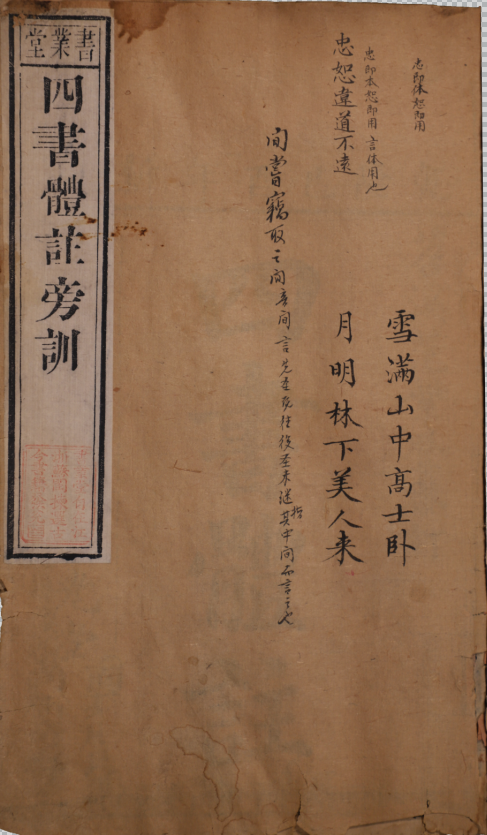 忠即体恕即用
雪滿山中高士卧
月明林下美人来
忠即本恕即用言体用也
忠恕違道不遠
间嘗竊取之间言先聖既往後聖未继其中间不言之也
書業堂
四書體註旁訓